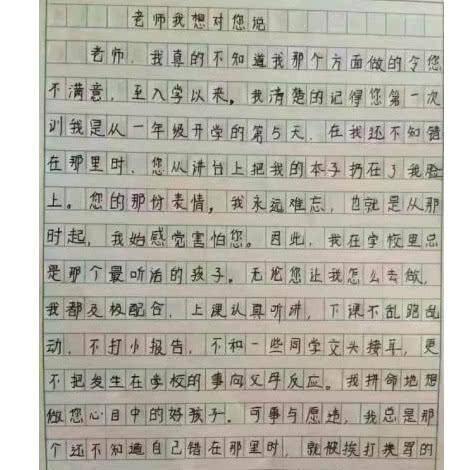 老师我想对您说
老师，我真的不知道我那个方面做的令您
不满意，至入学以来。我清楚的记得您第一次
训我是从一年级开学的第5天，在我还不知错
在那里时，您从讲台上把我的本子扔在了我脸
上。您的那份表情，我永远难忘，也就是从那
时起，我始感觉害怕您。因此，我在学校里总
是那个最听话的孩子。无论您让我怎么去做，
我都及极配合，上课认真听讲，下课不乱跑乱
动，不打小报告，不和一些同学交头接耳，更
不把发生在学校的事向父母反应。我拼命地想
做您心目中的好孩子。可事与愿违，我总是那
个还不知道自己错在那里时，就被挨打挨骂的